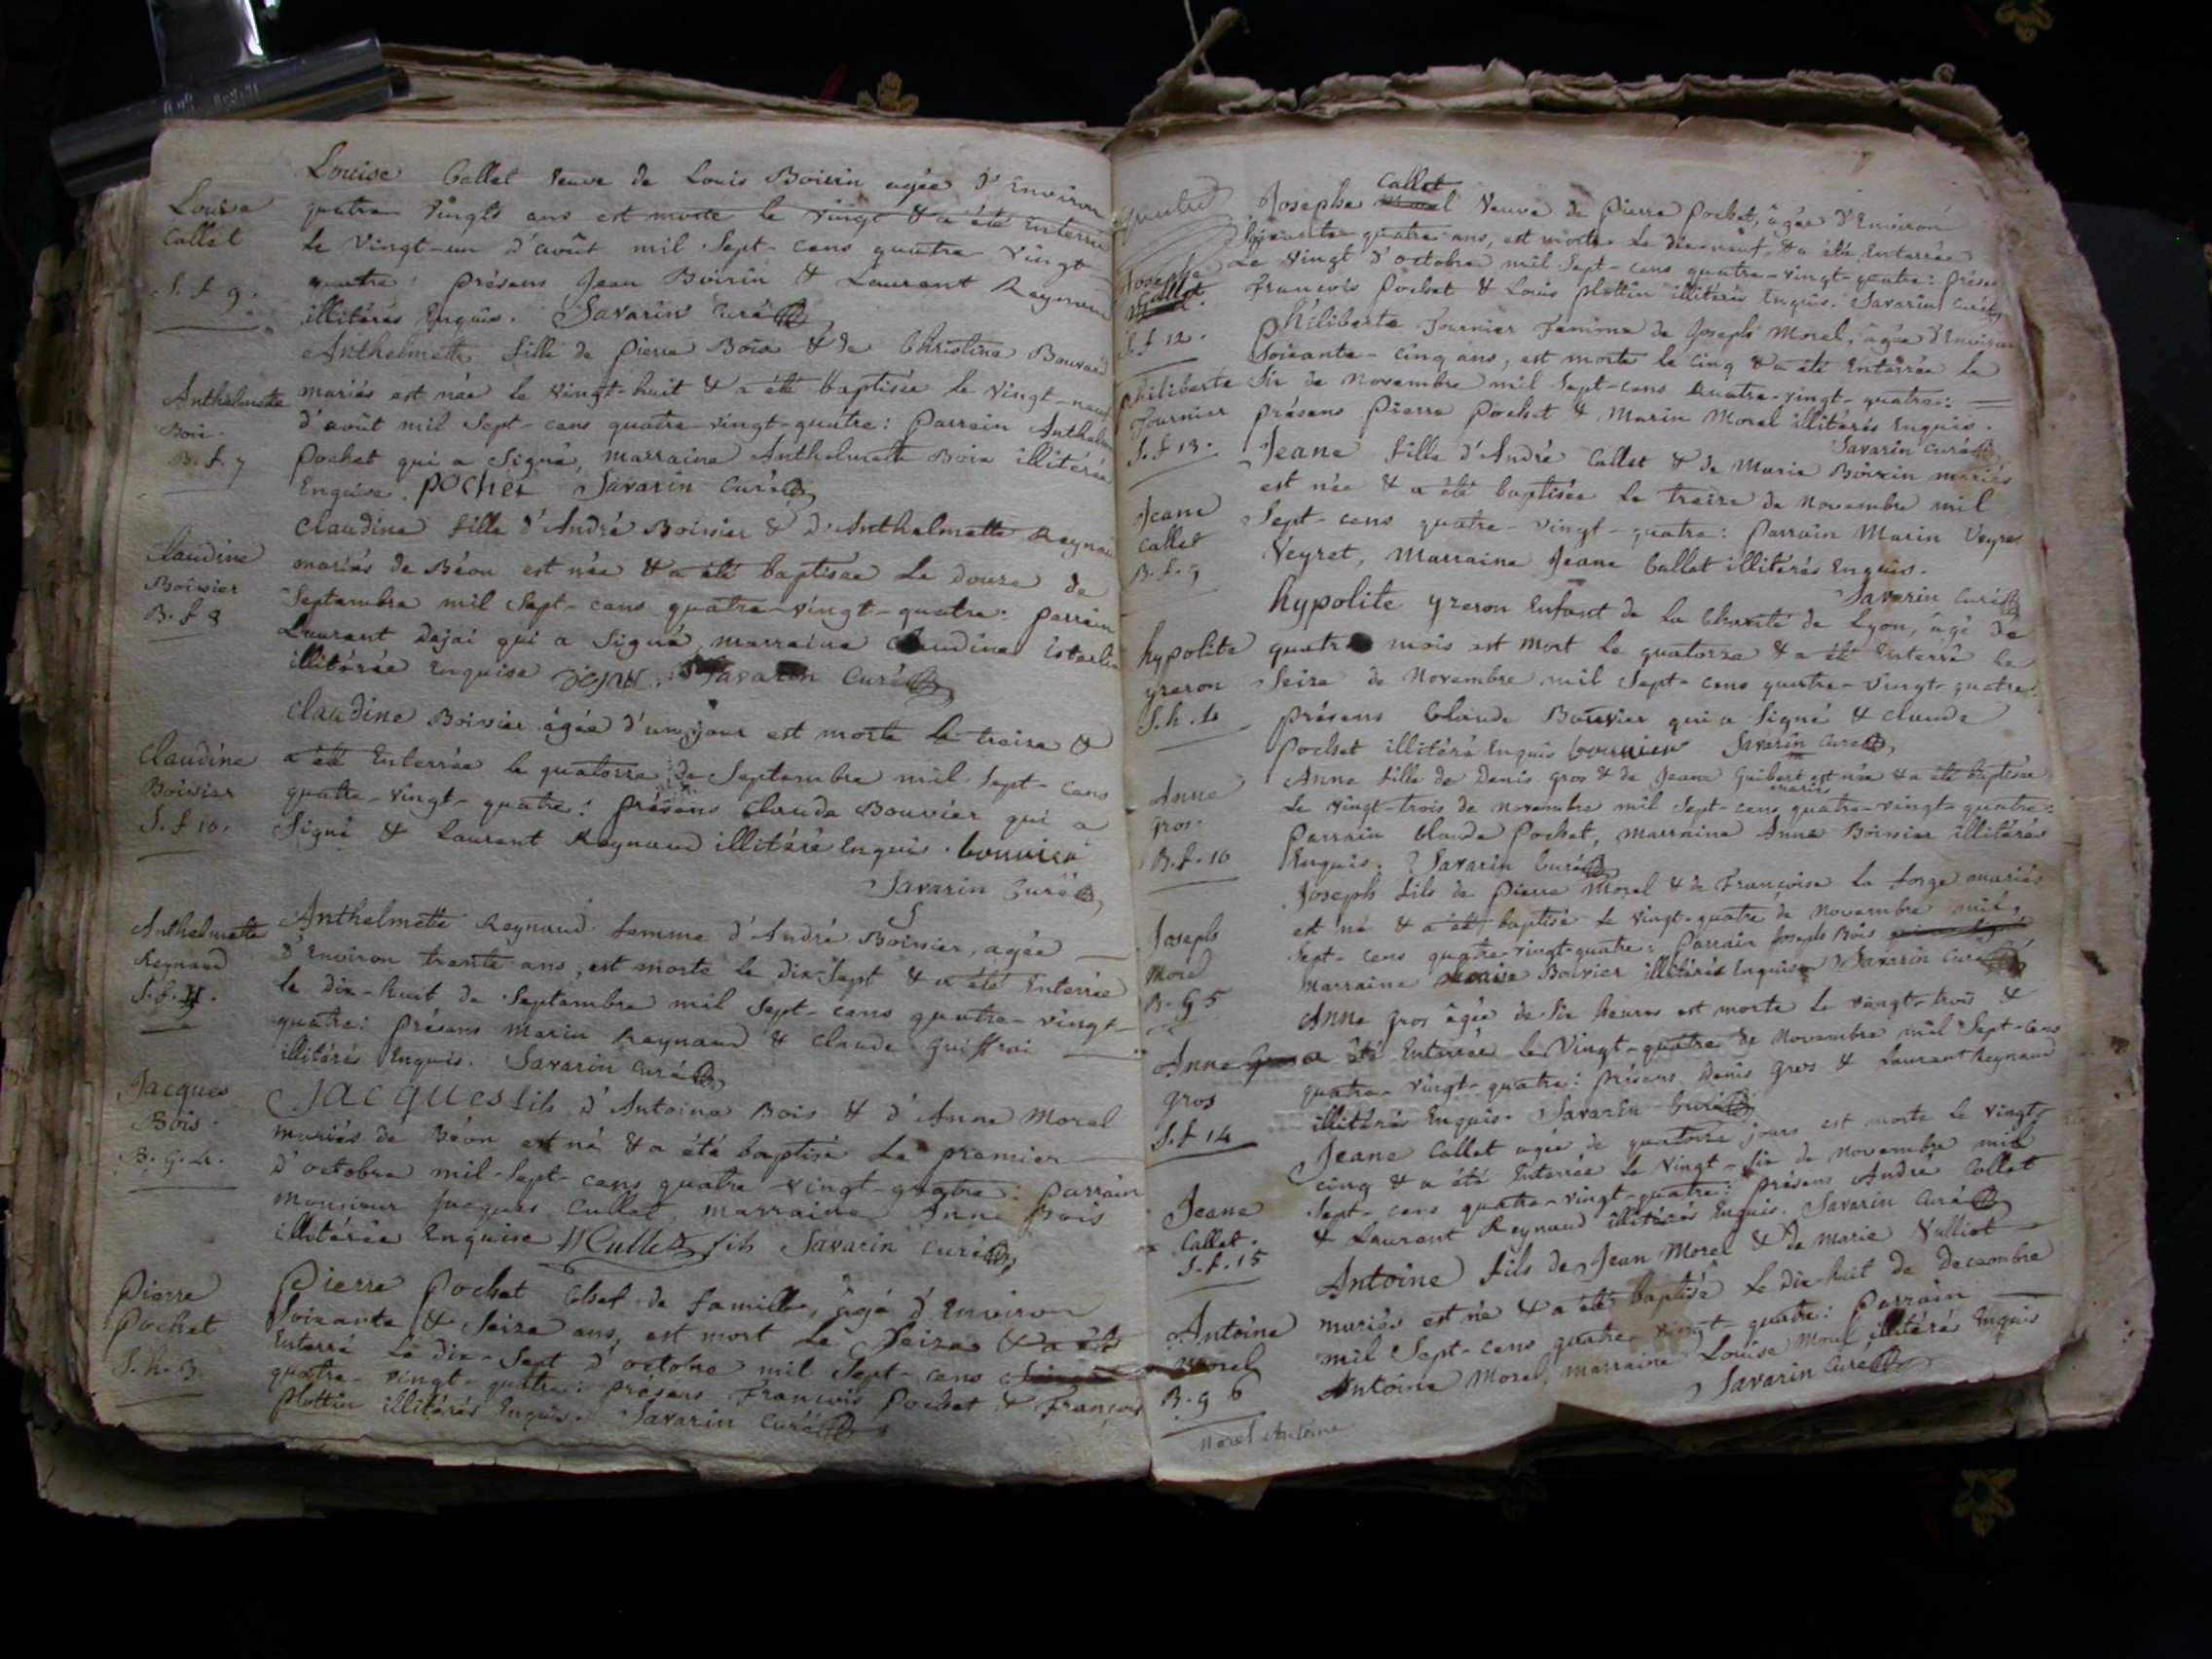 Louise Callet veuve de Louis Boivin agée d'Environ
Louise
Callet
S. f 9.
quatre vingts ans est morte le vingt & a été Enterrée
le vingt-un d'août mil Sept-cens quatre vingt
quatre: présens Jean Boivin & Laurent Reynaud
illitérés Enquis. Savarin Curé
Anthelmette fille de Pierre Bois & de Christine Bouvard
Anthelmette
Bois.
B. f. 7
mariés est née le vingt-huit & a été baptisée le vingt-neuf
d'août mil Sept-cens quatre vingt-quatre: Parrain Anthelme
Pochet qui a Signé, marraine Anthelmette Bois illitérée
Enquise. pochet Savarin Curé
Claudine fille d'André Boivier & d'Anthelmette Reynaud
Claudine
Boivier
B. f 8
mariés de Béon est née & a été baptisée le douze de
Septembre mil Sept-cens quatre-vingt-quatre: parrain
Laurent Dajai qui a Signé, marraine Claudine
illitérée Enquise Savarin Curé
Claudine Boivier agée d'un jour est morte le treize &
Claudine
Boivier
S. f 10.
a été Enterrée le quatorze de Septembre mil Sept-cens
quatre-vingt-quatre: présens Claude Bouvier qui a
Signé & Laurent Reynaud illitéré Enquis. bouvier
Savarin Curé
Anthelmette Reynaud femme d'André Boivier, agée
Anthelmette
Reynaud
S. f. 11.
d'Environ trente ans, est morte le dix-Sept & a été Enterrée
le dix-huit de Septembre mil Sept-cens quatre-vingt-
quatre: présens Marin Reynaud & Claude Guiffrai
illitérés Enquis. Savarin Curé
Jacques
Bois.
B. g. 4.
Jacques fils d'Antoine Bois & d'Anne Morel
mariés de Béon est né & a été baptisé le premier
d'octobre mil-Sept-cens quatre-vingt-quatre: Parrain
Monsieur Jacques Cullet, marraine Anne Bois
illitérée Enquise JJ Cullet fils Savarin Curé
Pierre
Pochet
S. h. 3
Pierre Pochet Chef de famille, âgé d'Environ
Soixante & Seize ans, est mort le Seize & a été
Enterré le dix-Sept d'octobre mil Sept-cens
quatre-vingt-quatre: présens François Pochet & François
Plottin illitérés Enquis. Savarin Curé
Callet
Josephe Morel Veuve de Pierre Pochet, âgée d'Environ
Josephe
Callet
Morel.
S. f 12.
Soixante quatre ans, est morte le dix neuf & a été Enterrée
le vingt d'octobre mil Sept-cens quatre-vingt-quatre: présens
François Pochet & Louis Plottin illitérés Enquis. Savarin Curé
Philiberte
Fournier
S. f 13.
Philiberte Fournier Femme de Joseph Morel, agée d'Environ
Soixante-cinq ans, est morte le cinq & a été Enterrée le
Six de Novembre mil Sept-cens quatre-vingt-quatre:
présens Pierre Pochet & Marin Morel illitérés Enquis.
Savarin Curé
Jeane
Callet
B. f. 9
Jeane fille d'André Callet & de Marie Boivin mariés
est née & a été baptisée le treize de Novembre mil
Sept-cens quatre-vingt-quatre: Parrain Marin Veyret
Veyret, Marraine Jeane Callet illitérés Enquis.
Savarin Curé
hypolite
yzeron
S. h. 4
hypolite yzeron Enfant de la Charité de Lyon, âgé de
quatre mois est mort le quatorze & a été Enterré le
Seize de Novembre mil Sept-cens quatre-vingt-quatre.
présens Claude Bouvier qui a Signé & Claude
Pochet illitéré Enquis bouvier Savarin Curé
Anne
gros.
B. f. 10
Anne fille de Denis gros & de Jeane Guibert est née & a été baptisée
mariés
le vingt-trois de novembre mil Sept-cens quatre-vingt-quatre:
Parrain Claude Pochet, marraine Anne Boivier illitérés
Enquis. Savarin Curé
Joseph
Morel
B. g 5
Joseph fils de Pierre Morel & de Françoise La forge mariés
est né & a été baptisé le vingt-quatre de Novembre mil
Sept-cens quatre-vingt-quatre: Parrain Joseph Bois
marraine Louise Boivier illitérés Enquis Savarin Curé
Anne
gros
S. f 14
Anne Gros âgée de Six heures est morte le vingt-trois &
a été Enterrée le Vingt-quatre de Novembre mil Sept-cens
quatre-vingt-quatre: présens Denis Gros & Laurent Reynaud
illitérés Enquis. Savarin Curé
Jeane
Callet.
S. f. 15
Jeane Callet agée de quatorze jours est morte le vingt-
cinq & a été Enterrée le Vingt-Six de Novembre mil
Sept-cens quatre-vingt-quatre: présens André Callet
& Laurent Reynaud illitérés Enquis. Savarin Curé
Antoine
Morel
B. g 6
Antoine fils de Jean Morel & de Marie Vulliot
mariés est né & a été baptisé le dix-huit de decembre
mil Sept-cens quatre-vingt-quatre: Parrain
Antoine Morel, marraine Louise Morel illitérés Enquis
Savarin Curé
Morel Antoine